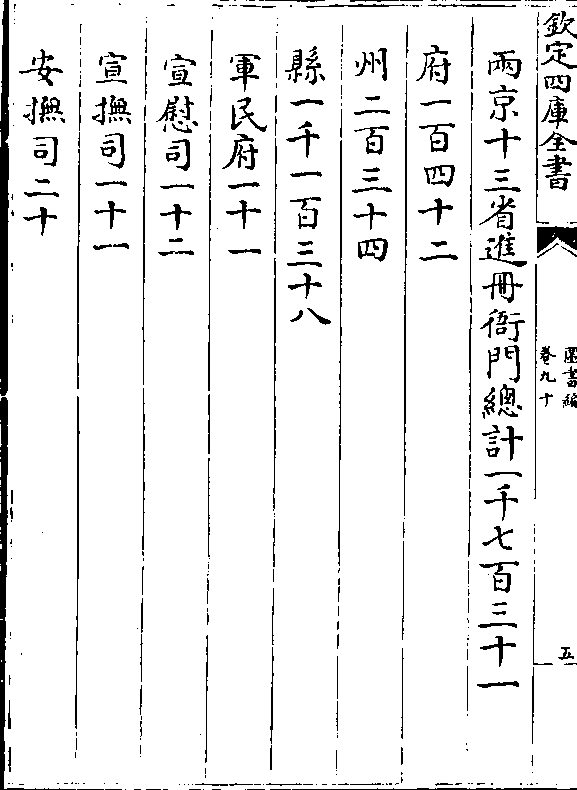 欽定四庫全書
圖書編
卷九十
五
兩京十三省進冊衙門總計一千七百三十一
府一百四十二
州二百三十四
縣一千一百三十八
軍民府一十一
宣慰司一十二
宣撫司一十一
安撫司二十